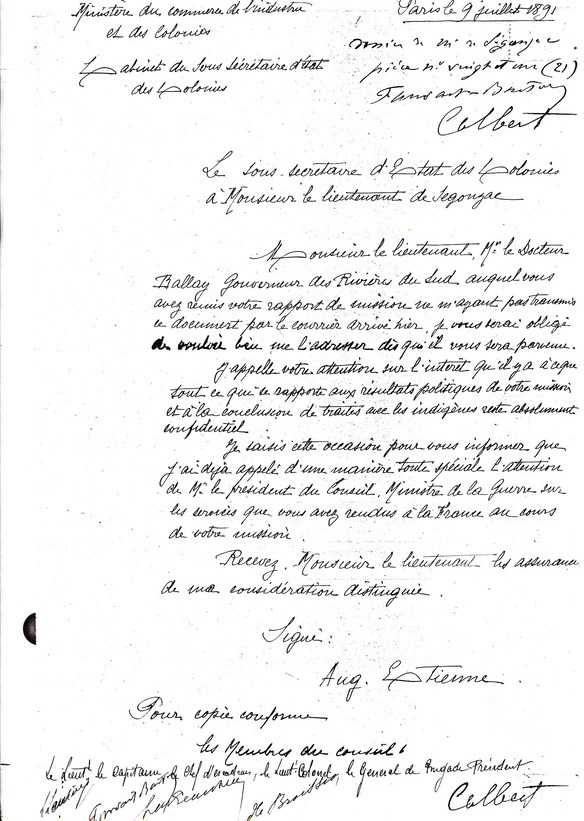 Ministère du commerce de l'industrie
et des Colonies
Cabinet du Sous Secrétaire d'état
des Colonies
Paris le 9 juillet 1891
de Mr de Segonzac
pièce no vingt et un (21)
Colbert
Le sous-secrétaire d'Etat des Colonies
à Monsieur le lieutenant de Segonzac
Monsieur le lieutenant, Mr le Docteur
Ballay Gouverneur des Rivières du Sud auquel vous
avez remis votre rapport de mission ne m'ayant pas transmis
ce document par le courrier arrivé hier, je vous serai obligé
de vouloir bien me l'adresser dès qu'il vous sera parvenu.
J'appelle votre attention sur l'intérêt qu'il y a à ce que
tout ce qui se rapporte aux résultats politiques de votre mission
et à la conclusion de traités avec les indigènes reste absolument
confidentiel.
Je saisis cette occasion pour vous informer que
j'ai déjà appelé d'une manière toute spéciale l'attention
de Mr le président du Conseil, Ministre de la Guerre sur
les services que vous avez rendus à la France au cours
de votre mission.
Recevez, Monsieur le lieutenant les assurance
de ma considération distinguée.
Signé:
Aug. Etienne.
Pour copie conforme
les Membres du conseil
Le Lieutt le Capitaine, le Chef d'escadrons, le Lieut-Colonel, le Général de Brigade Président
Colbert